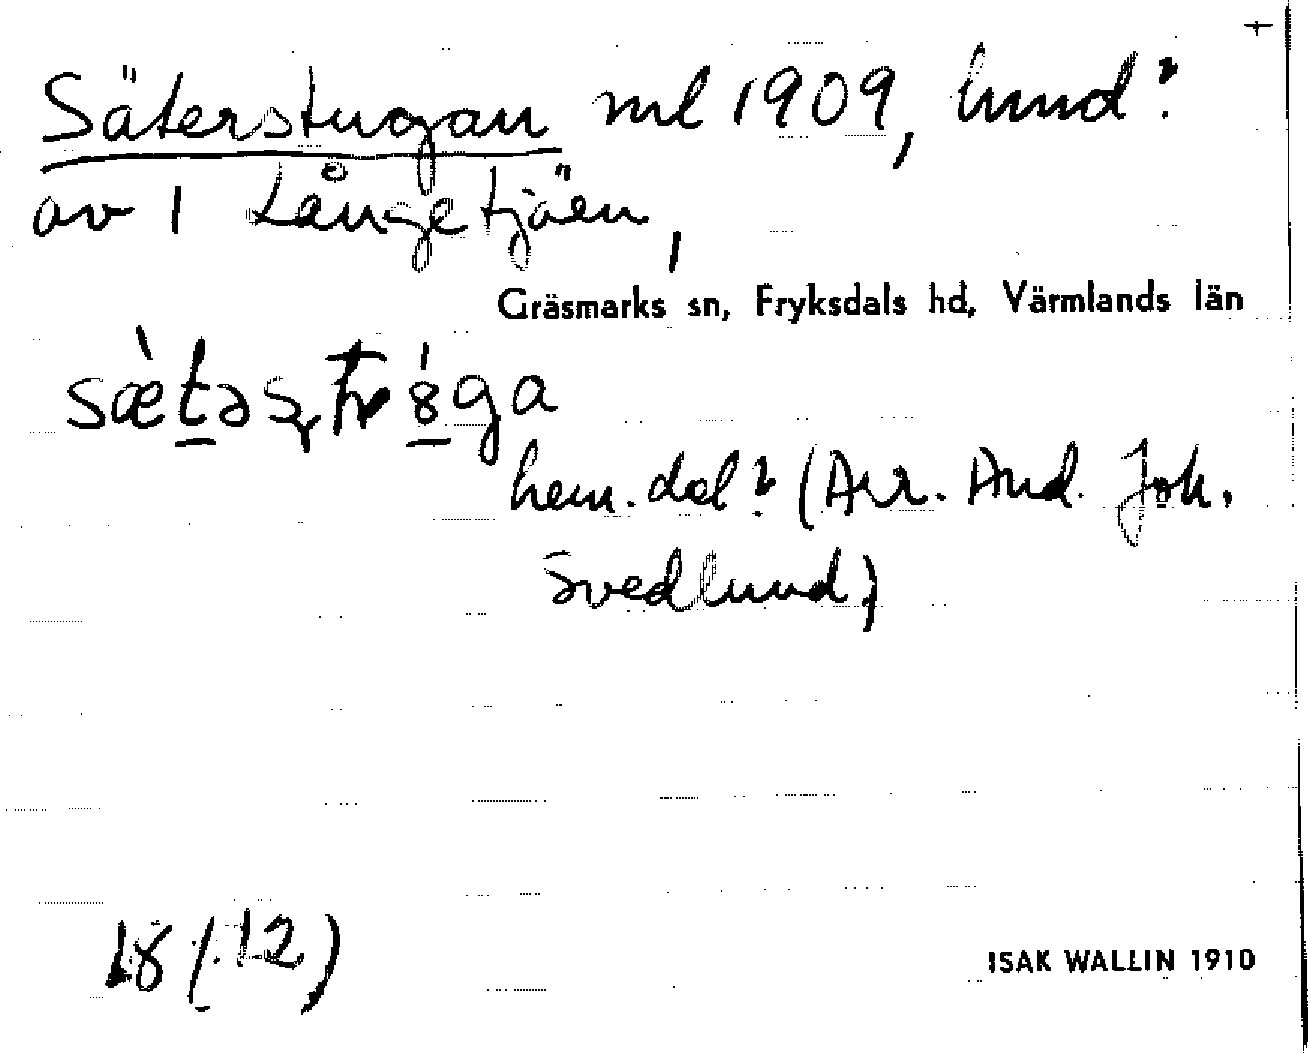 Säterstugan ml 1909, hmd?
av 1 Långetjäen,
Gräsmarks sn, Fryksdals hd, Värmlands län
hem. del? (Arr. And. Joh.
Svedlund)
18 (.12)
ISAK WALLIN 1910